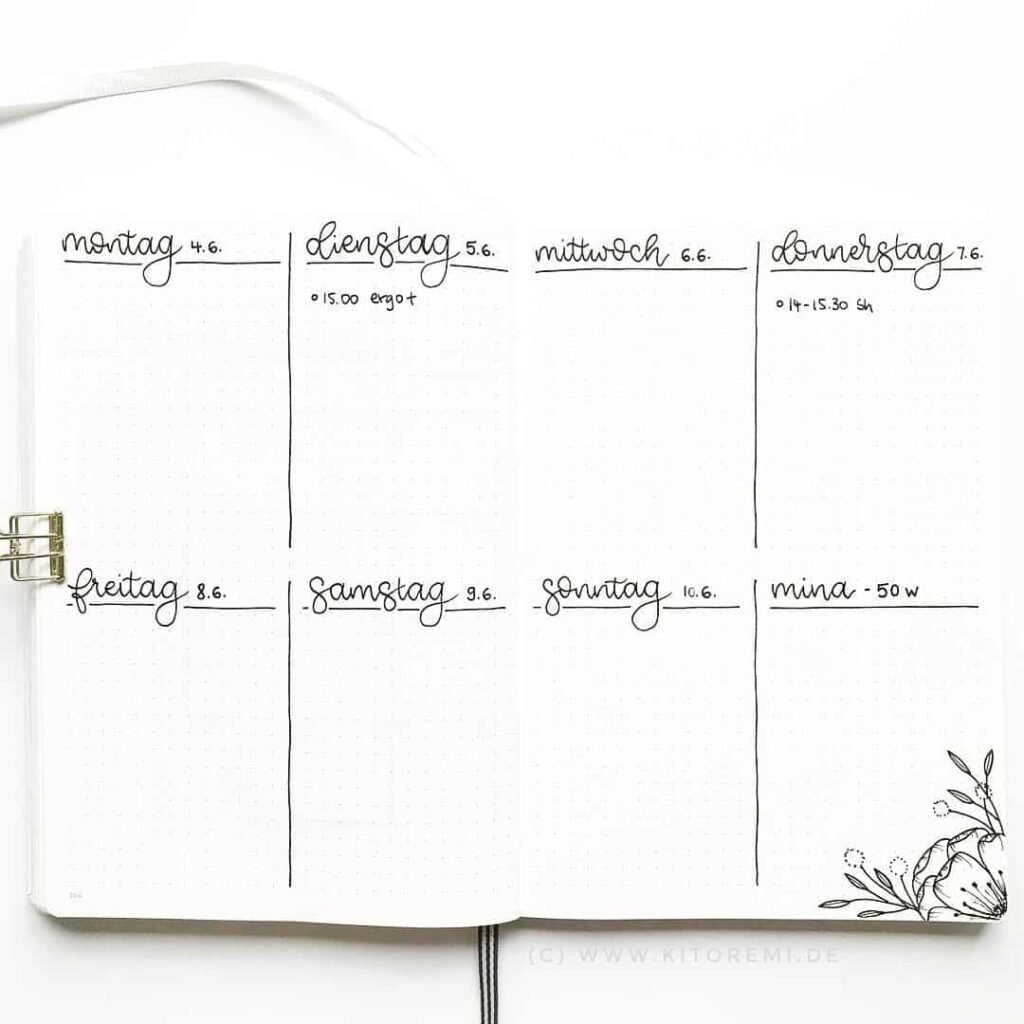 montag 4.6.
dienstag 5.6.
15.00 ergot
mittwoch 6.6.
donnerstag 7.6.
14-15.30 sh
freitag 8.6.
samstag 9.6.
sonntag 10.6.
mina - 50 w
(C) WWW.KITOREMI.DE